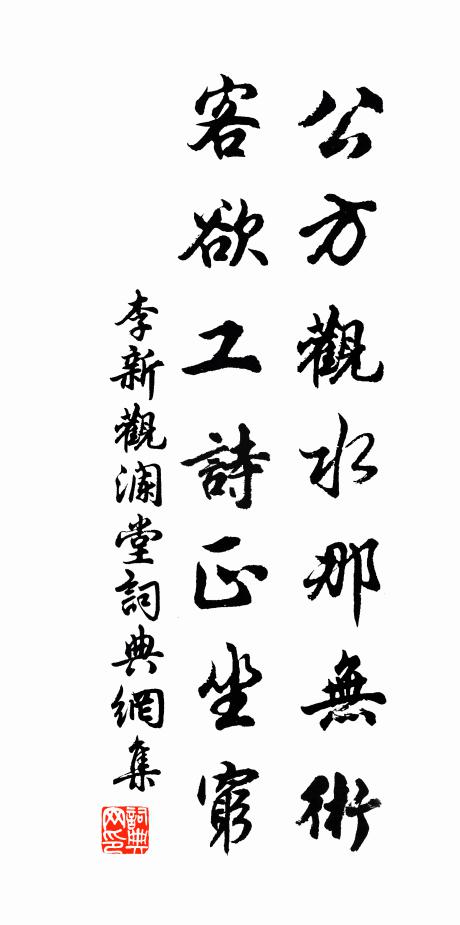 公方觀水那無術
客欲工詩正坐窮
李新觀瀾堂詞典網集
詞典網印